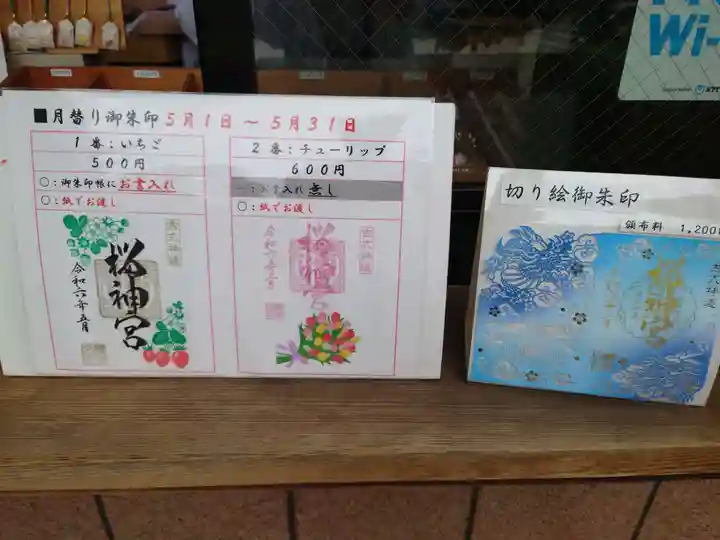 ■月替り御朱印 5月1日~5月31日
1番:いちご
500円
○:御朱印帳にお書入れ
○:紙でお渡し
桜神宮
令和六年五月
2番:チューリップ
600円
入れ無し
○:紙でお渡し
桜神宮
令和六年五月
切り絵御朱印
頒布料 1,200
桜神宮
Wi-